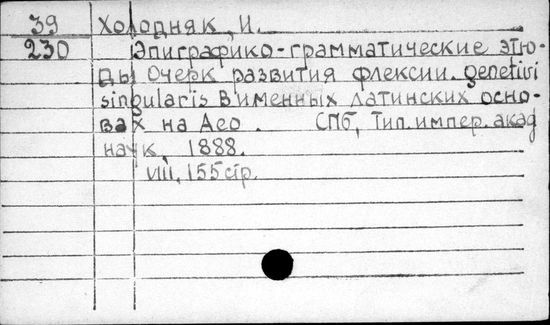 39 Холодняк, И.
230 Эпиграфико-грамматические этю-
ды очерк развития флексии genetivi
singularis в именных латинских осно-
вах на Aeo. СПб, Тип. импер. акад
наук, 1888.
VIII, 155 стр.